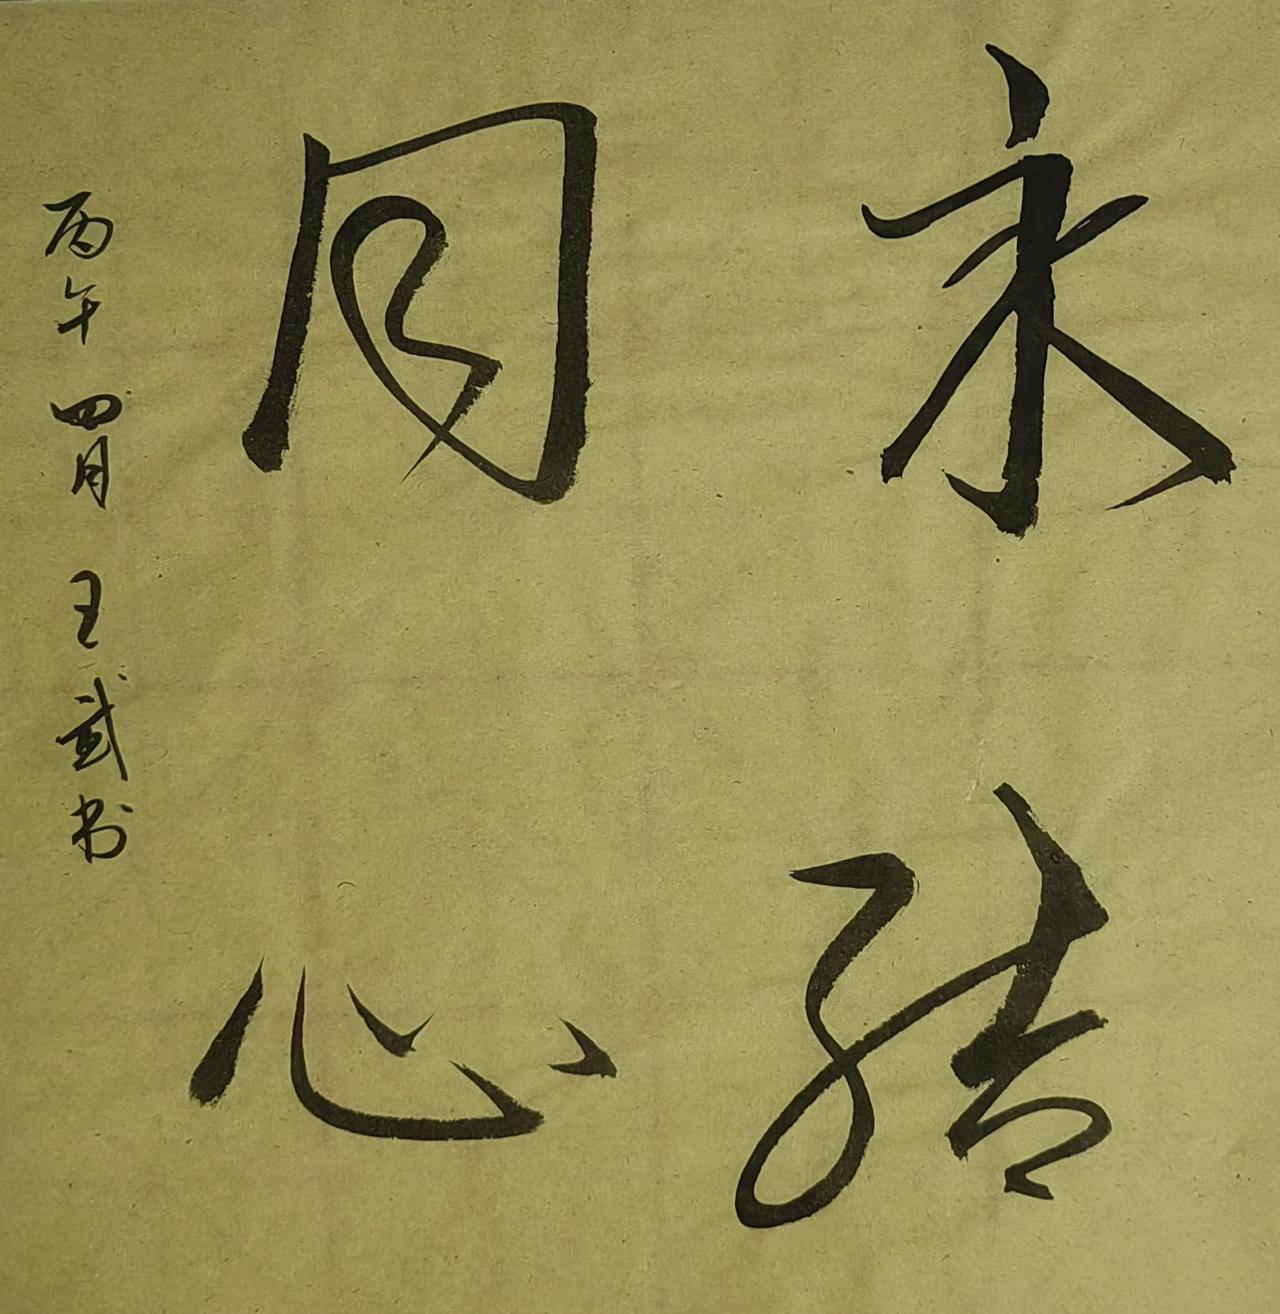 永结
同心
丙午四月王武书